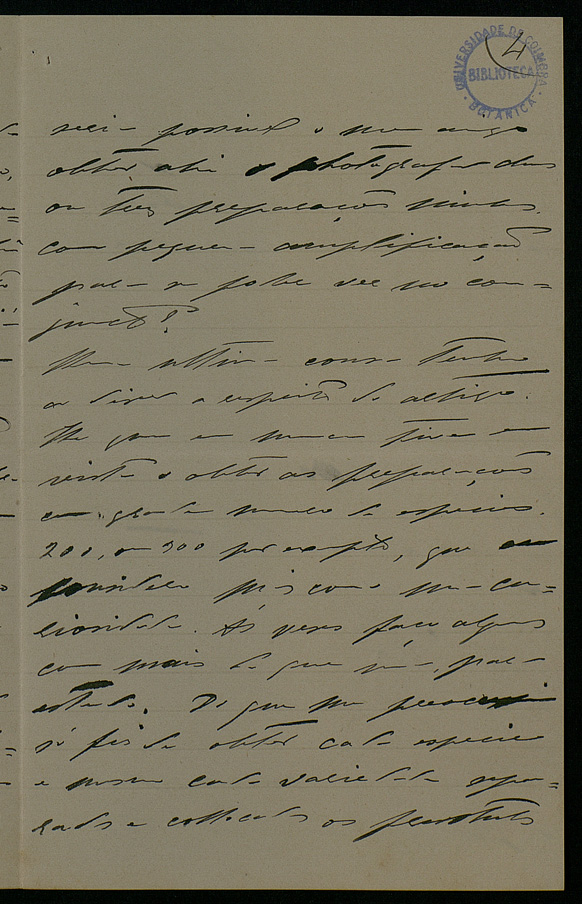 UNIVERSIDADE DE COIMBRA
BIBLIOTECA
BOTANICA
4
seria possivel o meu amigo
obter ahi o photografar duas
ou tres preparações minhas,
com pequena amplificação
para se poder ver no con=
juncto?
Uma ultima cousa tenho
a dizer a respeito do artigo.
He que eu nunca tive em
vista o obter as preparações
em grande numero de especies,
200, ou 300 por exemplo, que
considero mais como uma cu=
riosidade. Ás vezes faço algumas
com mais do que uma, para
estudo. Do que me
só foi de obter cada especie
e mesmo cada variedade sepa=
rada e collocados os